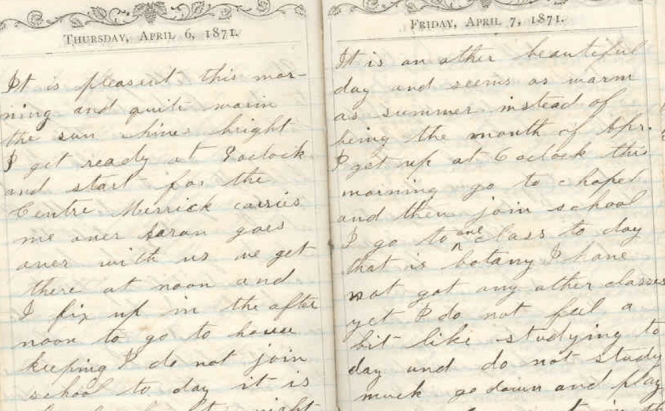 THURSDAY, APRIL 6, 1871.
It is pleasent this mor-
ning and quite warm
the sun shines bright
I get ready at 9 oclock
and start for the
Centre Merrick carries
me over Saran goes
over with us we get
there at noon and
I fix up in the after
noon to go to house
keeping I do not join
school to day it is
night
FRIDAY, APRIL 7, 1871.
It is an other beautiful
day and seems as warm
as summer instead of
being the month of Apr.
I get up at 6 oclock this
morning go to chapel
and then join school
I go to one class to day
that is botany I have
not got any other classes
yet I do not feel a
bit like studying to
day and do not study
much go down and play